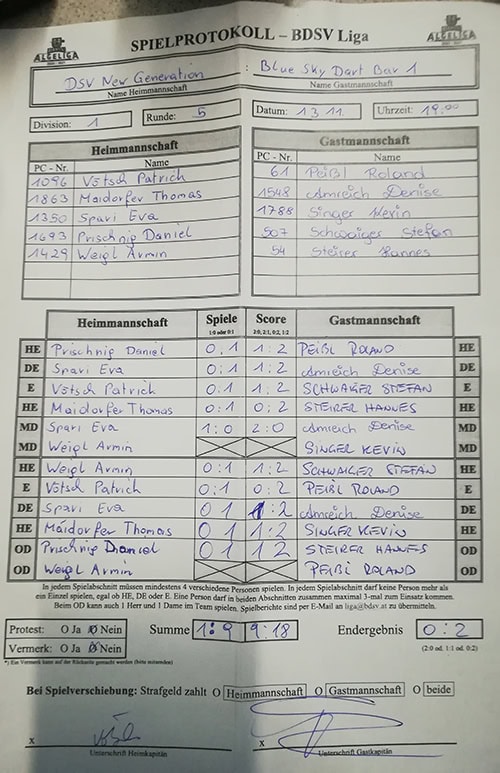 ALGELIGA SPIELPROTOKOLL – BDSV Liga ALGELIGA
DSV New Generation : Blue Sky Dart Bar 1
Name Heimmannschaft Name Gastmannschaft
Division: 1 Runde: 5 Datum: 13.11. Uhrzeit: 19.00
Heimmannschaft Gastmannschaft
PC - Nr. Name PC - Nr. Name
1096 Vötsch Patrich 61 Peißl Roland
1863 Maidorfer Thomas 1548 Amreich Denise
1350 Spari Eva 1788 Singer Kevin
1693 Prischnig Daniel 507 Schwaiger Stefan
1429 Weigl Armin 54 Steirer Hannes
Heimmannschaft Spiele Score Gastmannschaft
1:0 oder 0:1 2:0, 2:1, 0:2, 1:2
HE Prischnig Daniel 0:1 1:2 PEIßL ROLAND HE
DE Spari Eva 0:1 1:2 Amreich Denise DE
E Vötsch Patrich 0:1 1:2 SCHWAIGER STEFAN E
HE Maidorfer Thomas 0:1 0:2 STEIRER HANNES HE
MD Spari Eva 1:0 2:0 Amreich Denise MD
MD Weigl Armin SINGER KEVIN MD
HE Weigl Armin 0:1 1:2 SCHWAIGER STEFAN HE
E Vötsch Patrich 0:1 0:2 PEIßL ROLAND E
DE Spari Eva 01 1:2 Amreich Denise DE
HE Maidorfer Thomas 01 12 SINGER KEVIN HE
OD Prischnig Daniel 01 12 STEIRER HANNES OD
OD Weigl Armin PEIßl ROLAND OD
In jedem Spielabschnitt müssen mindestens 4 verschiedene Personen spielen. In jedem Spielabschnitt darf keine Person mehr als
ein Einzel spielen, egal ob HE, DE oder E. Eine Person darf in beiden Abschnitten zusammen maximal 3-mal zum Einsatz kommen.
Beim OD kann auch 1 Herr und 1 Dame im Team spielen. Spielberichte sind per E-Mail an liga@bdsv.at zu übermitteln.
Protest: O Ja O Nein Summe 1:9 9:18 Endergebnis 0:2
Vermerk: O Ja O Nein (2:0 od. 1:1 od. 0:2)
*) Ein Vermerk kann auf der Rückseite gemacht werden (bitte ankreuzen)
Bei Spielverschiebung: Strafgeld zahlt O Heimmannschaft O Gastmannschaft O beide
x x
Unterschrift Heimkapitän Unterschrift Gastkapitän